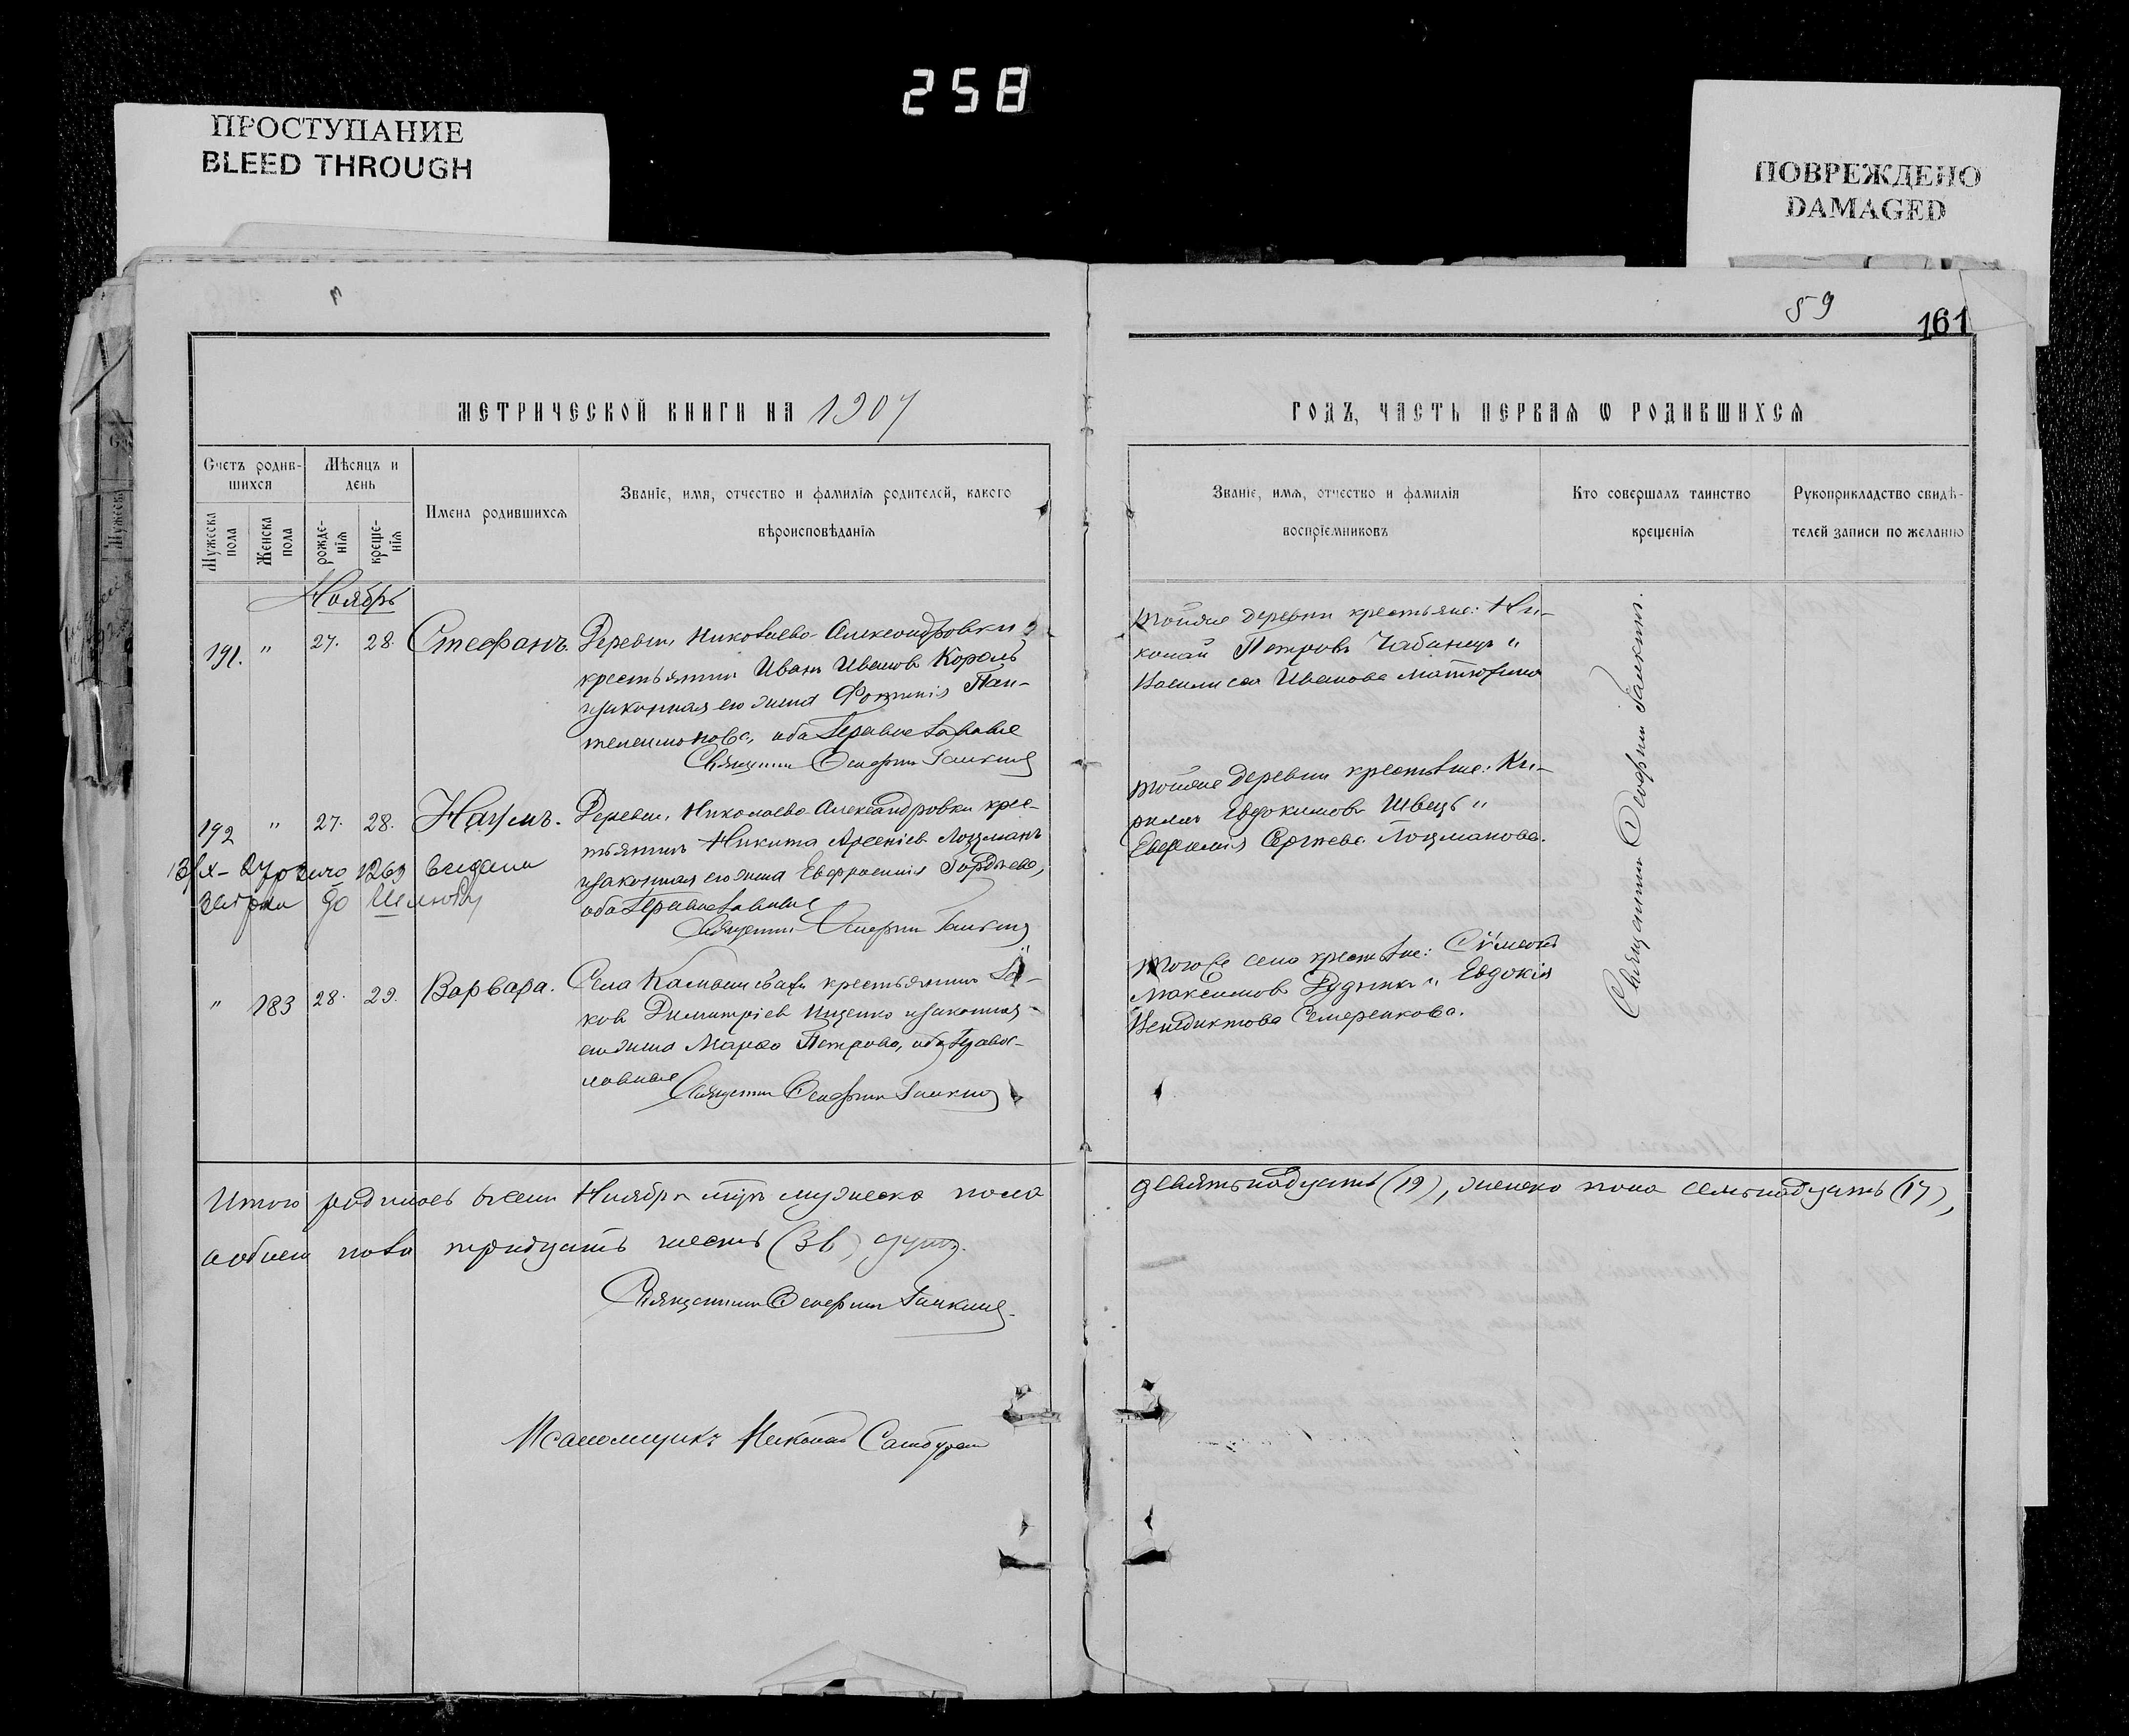 258
ПРОСТУПАНИЕ
BLEED THROUGH
ПОВРЕЖДЕНО
DAMAGED
59
161
МЕТРИЧЕСКОЙ КНИГИ НА 1907
ГОДЪ, ЧАСТЬ ПЕРВАѦ Ѡ РОДИВШИХСѦ
Счетъ родив-
шихсѧ
Мужеска пола
Женска пола
Мѣсяцъ и
день
рожде-
нiѧ
креще-
нiѧ
Имена родившихсѧ
Званiе, имѧ, отчество и фамилiѧ родителей, какого
вѣроисповѣданiѧ
Званiе, имѧ, отчество и фамилiѧ
воспрiемниковъ
Кто совершалъ таинство
крещенiѧ
Рукоприкладство свидѣ-
телей записи по желанiю
Ноябрь
191. " 27. 28. Стефанъ.
Деревни Николаево-Александровки
крестьянинъ Иванъ Ивановъ Король
и законная его жена Фотинiя Пан-
телеимонова, оба православные
Священникъ Галкинъ
тойже деревни крестьяне: Ни-
колай Петровъ Чабанецъ и
Василиса Иванова
192 " 27. 28. Наумъ.
Деревни Николаево-Александровки крес-
тьянинъ Никита Арсенiевъ Лоцманъ
и законная его жена Евфросинiя Гордѣева,
оба православные
Священникъ Галкинъ
тойже деревни крестьяне: Ки-
риллъ Евдокимовъ Швецъ и
Евфимiя Сергѣева Лоцманова.
" 183 28. 29. Варвара.
Села крестьянинъ Iа-
ковъ Димитрiевъ Ищенко и законная
его жена Марѳа Петрова, оба правос-
лавные
Священникъ Галкинъ
того же села крестьяне: Сумеонъ
Максимовъ и Евдокiя
Венедиктова Семеренкова.
Священникъ Галкинъ.
Итого родилось въ Ноябрѣ м-цѣ мужеска пола
девятьнадцать (19), женска пола семьнадцать (17),
а обоего пола тридцать шесть (36) душъ.
Священникъ Галкинъ
Псаломщикъ Николай